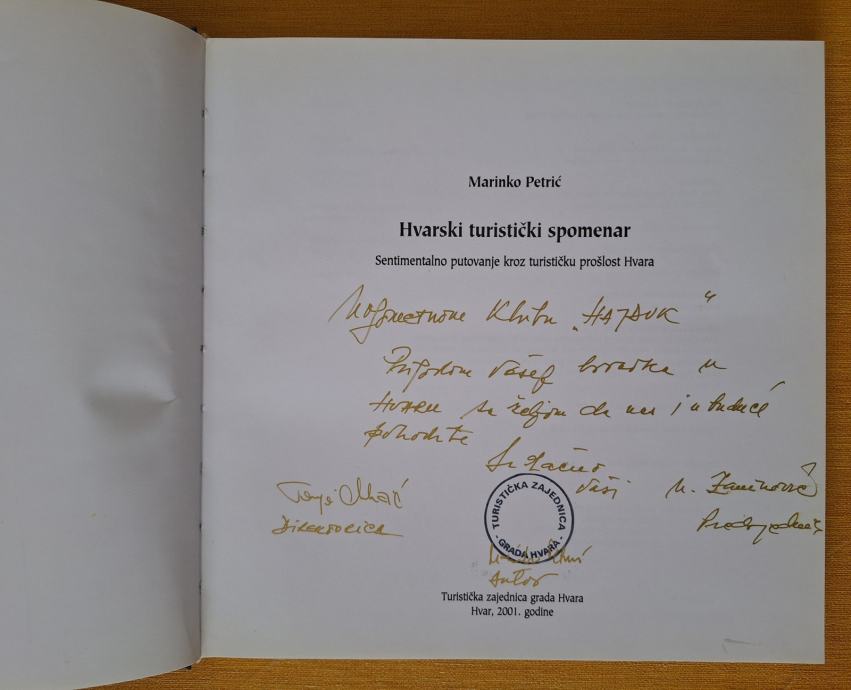 Marinko Petrić
Hvarski turistički spomenar
Sentimentalno putovanje kroz turističku prošlost Hvara
Nogometnom Klubu „HAJDUK“
Prigodom Vašeg boravka u
HVARU sa željom da nas i u buduće
pohodite
Srdačno
Vaši
DIREKTORICA
M. Zaninović
Predsjednik
TURISTIČKA ZAJEDNICA
- GRADA HVARA -
Autor
Turistička zajednica grada Hvara
Hvar, 2001. godine